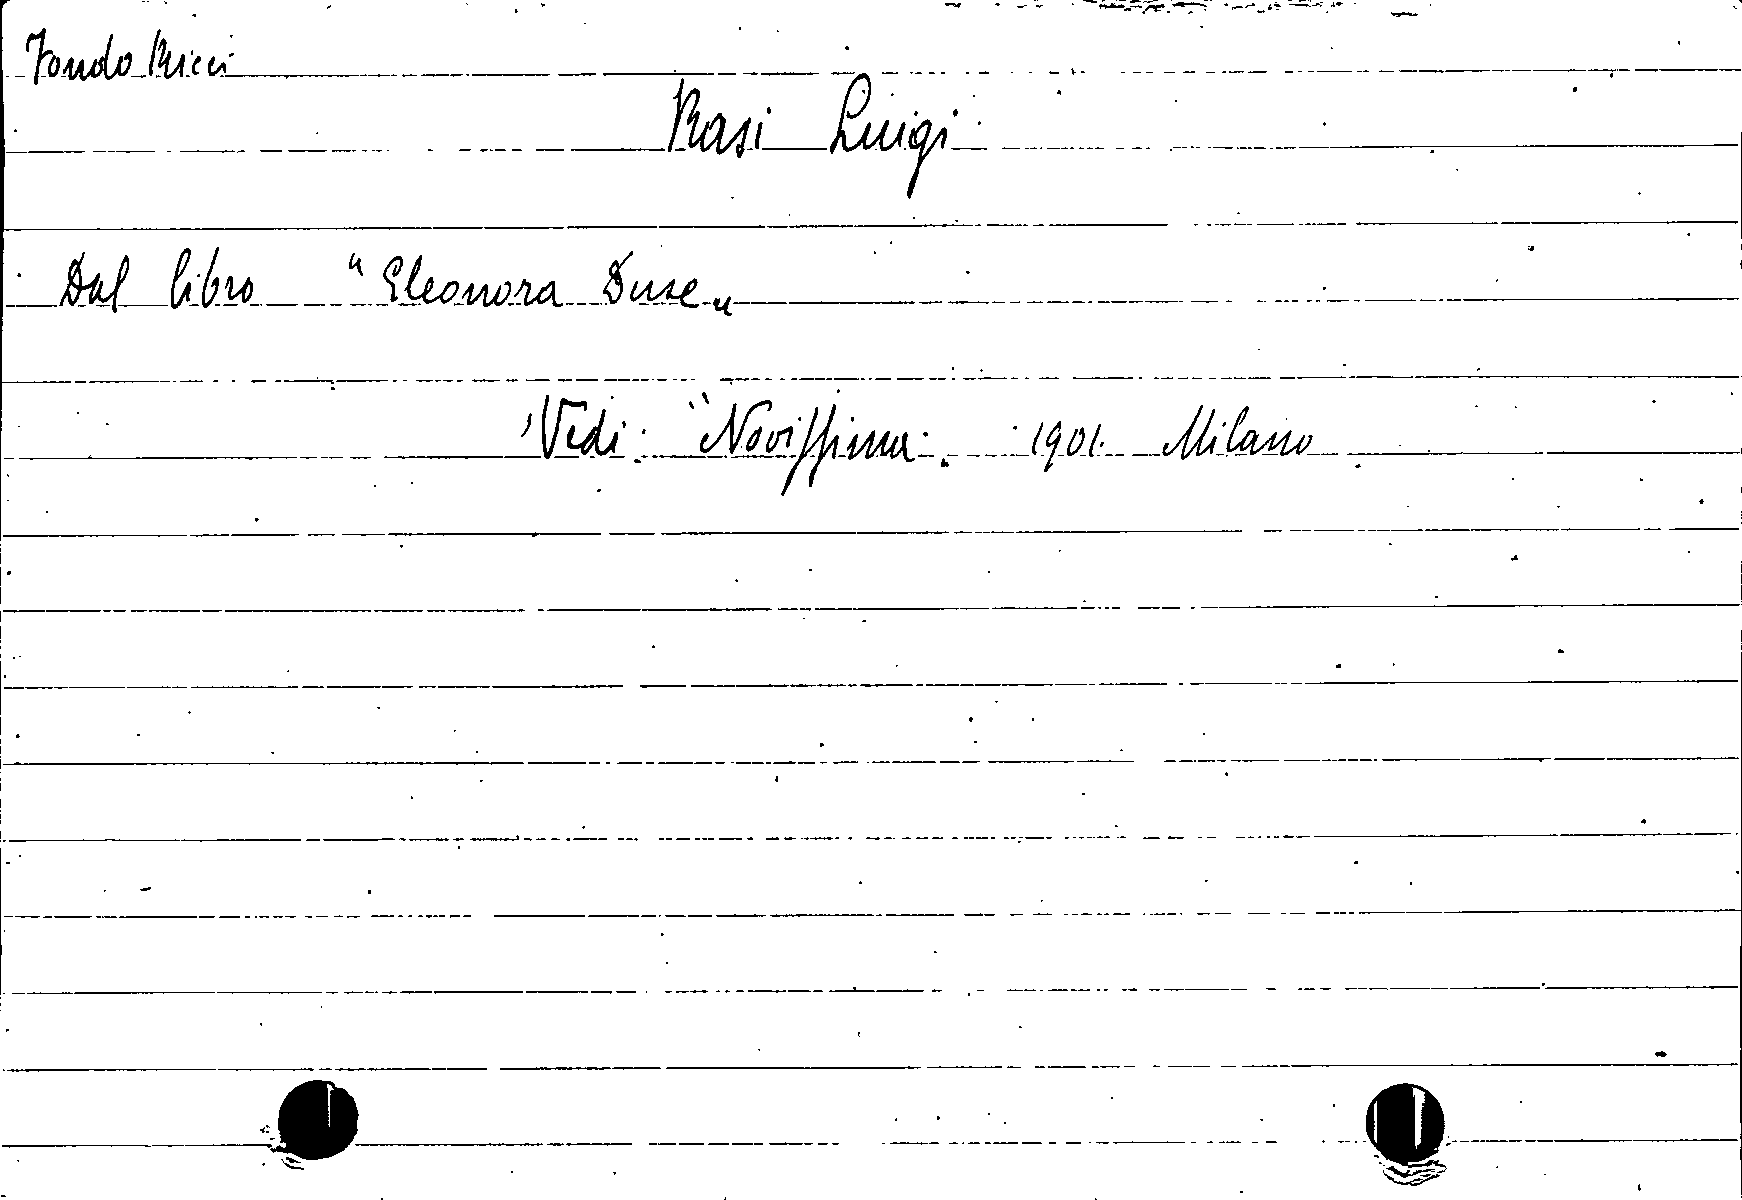 Fondo Ricci
Rasi Luigi
Dal libro "Eleonora Duse"
Vedi: "Novissima". 1901. Milano